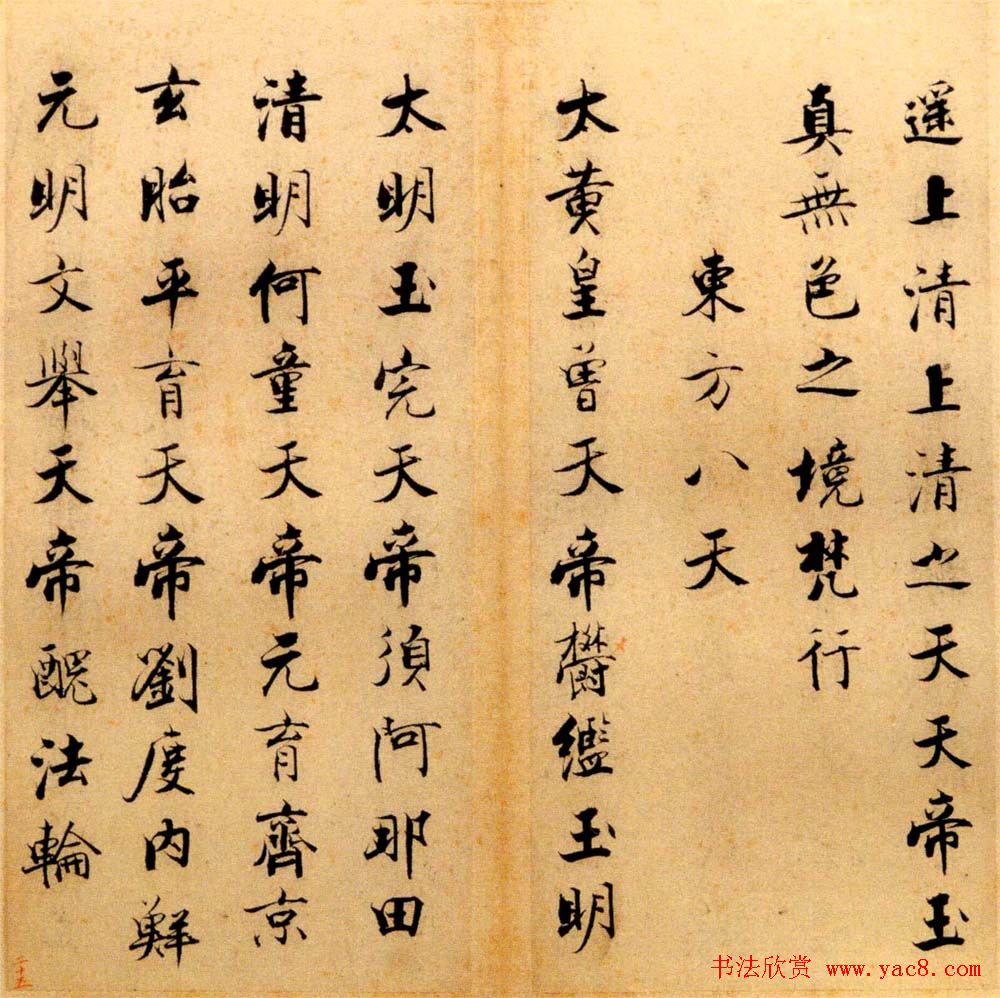 遥上清上清之天天帝玉
真無色之境梵行
東方八天
太黄皇曾天帝欝繿玉明
太明玉完天帝須阿那田
清明何童天帝元育齊京
玄胎平育天帝劉度内鮮
元明文舉天帝醜法輪
二十五
书法欣赏 www.yac8.com